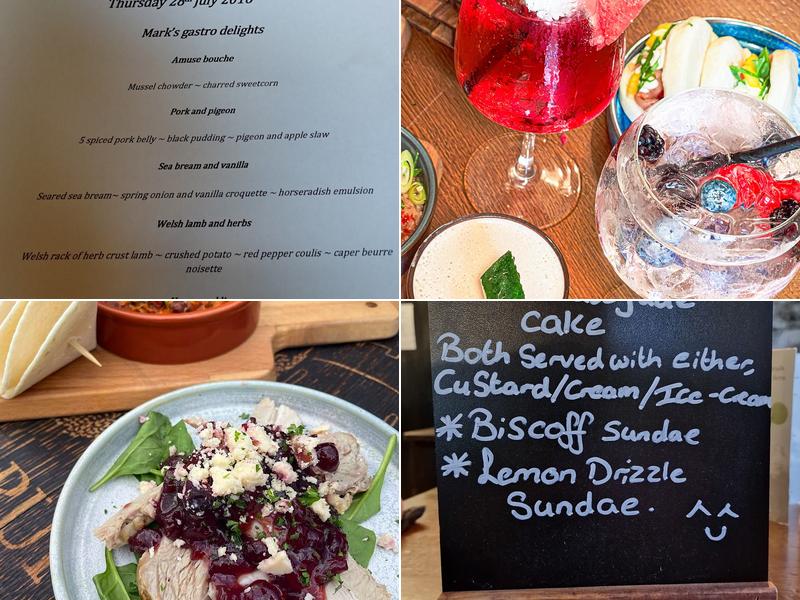 Thursday 28th July 2016
Mark's gastro delights
Amuse bouche
Mussel chowder ~ charred sweetcorn
Pork and pigeon
5 spiced pork belly ~ black pudding ~ pigeon and apple slaw
Sea bream and vanilla
Seared sea bream~ spring onion and vanilla croquette ~ horseradish emulsion
Welsh lamb and herbs
Welsh rack of herb crust lamb ~ crushed potato ~ red pepper coulis ~ caper beurre
noisette
Cake
Both Served with either,
Custard/Cream/Ice-Cream
* Biscoff Sundae
* Lemon Drizzle
Sundae.